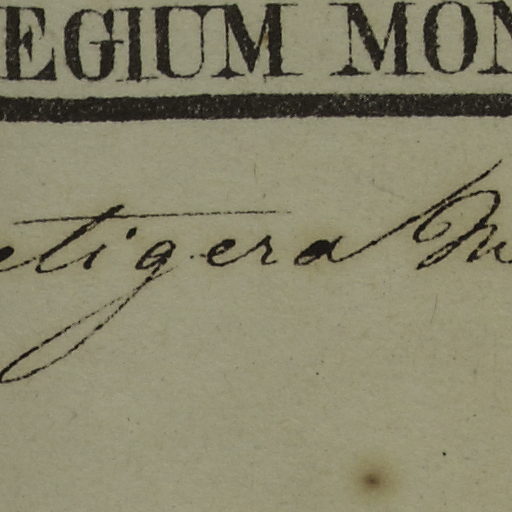 EGIUM MON
etigera M